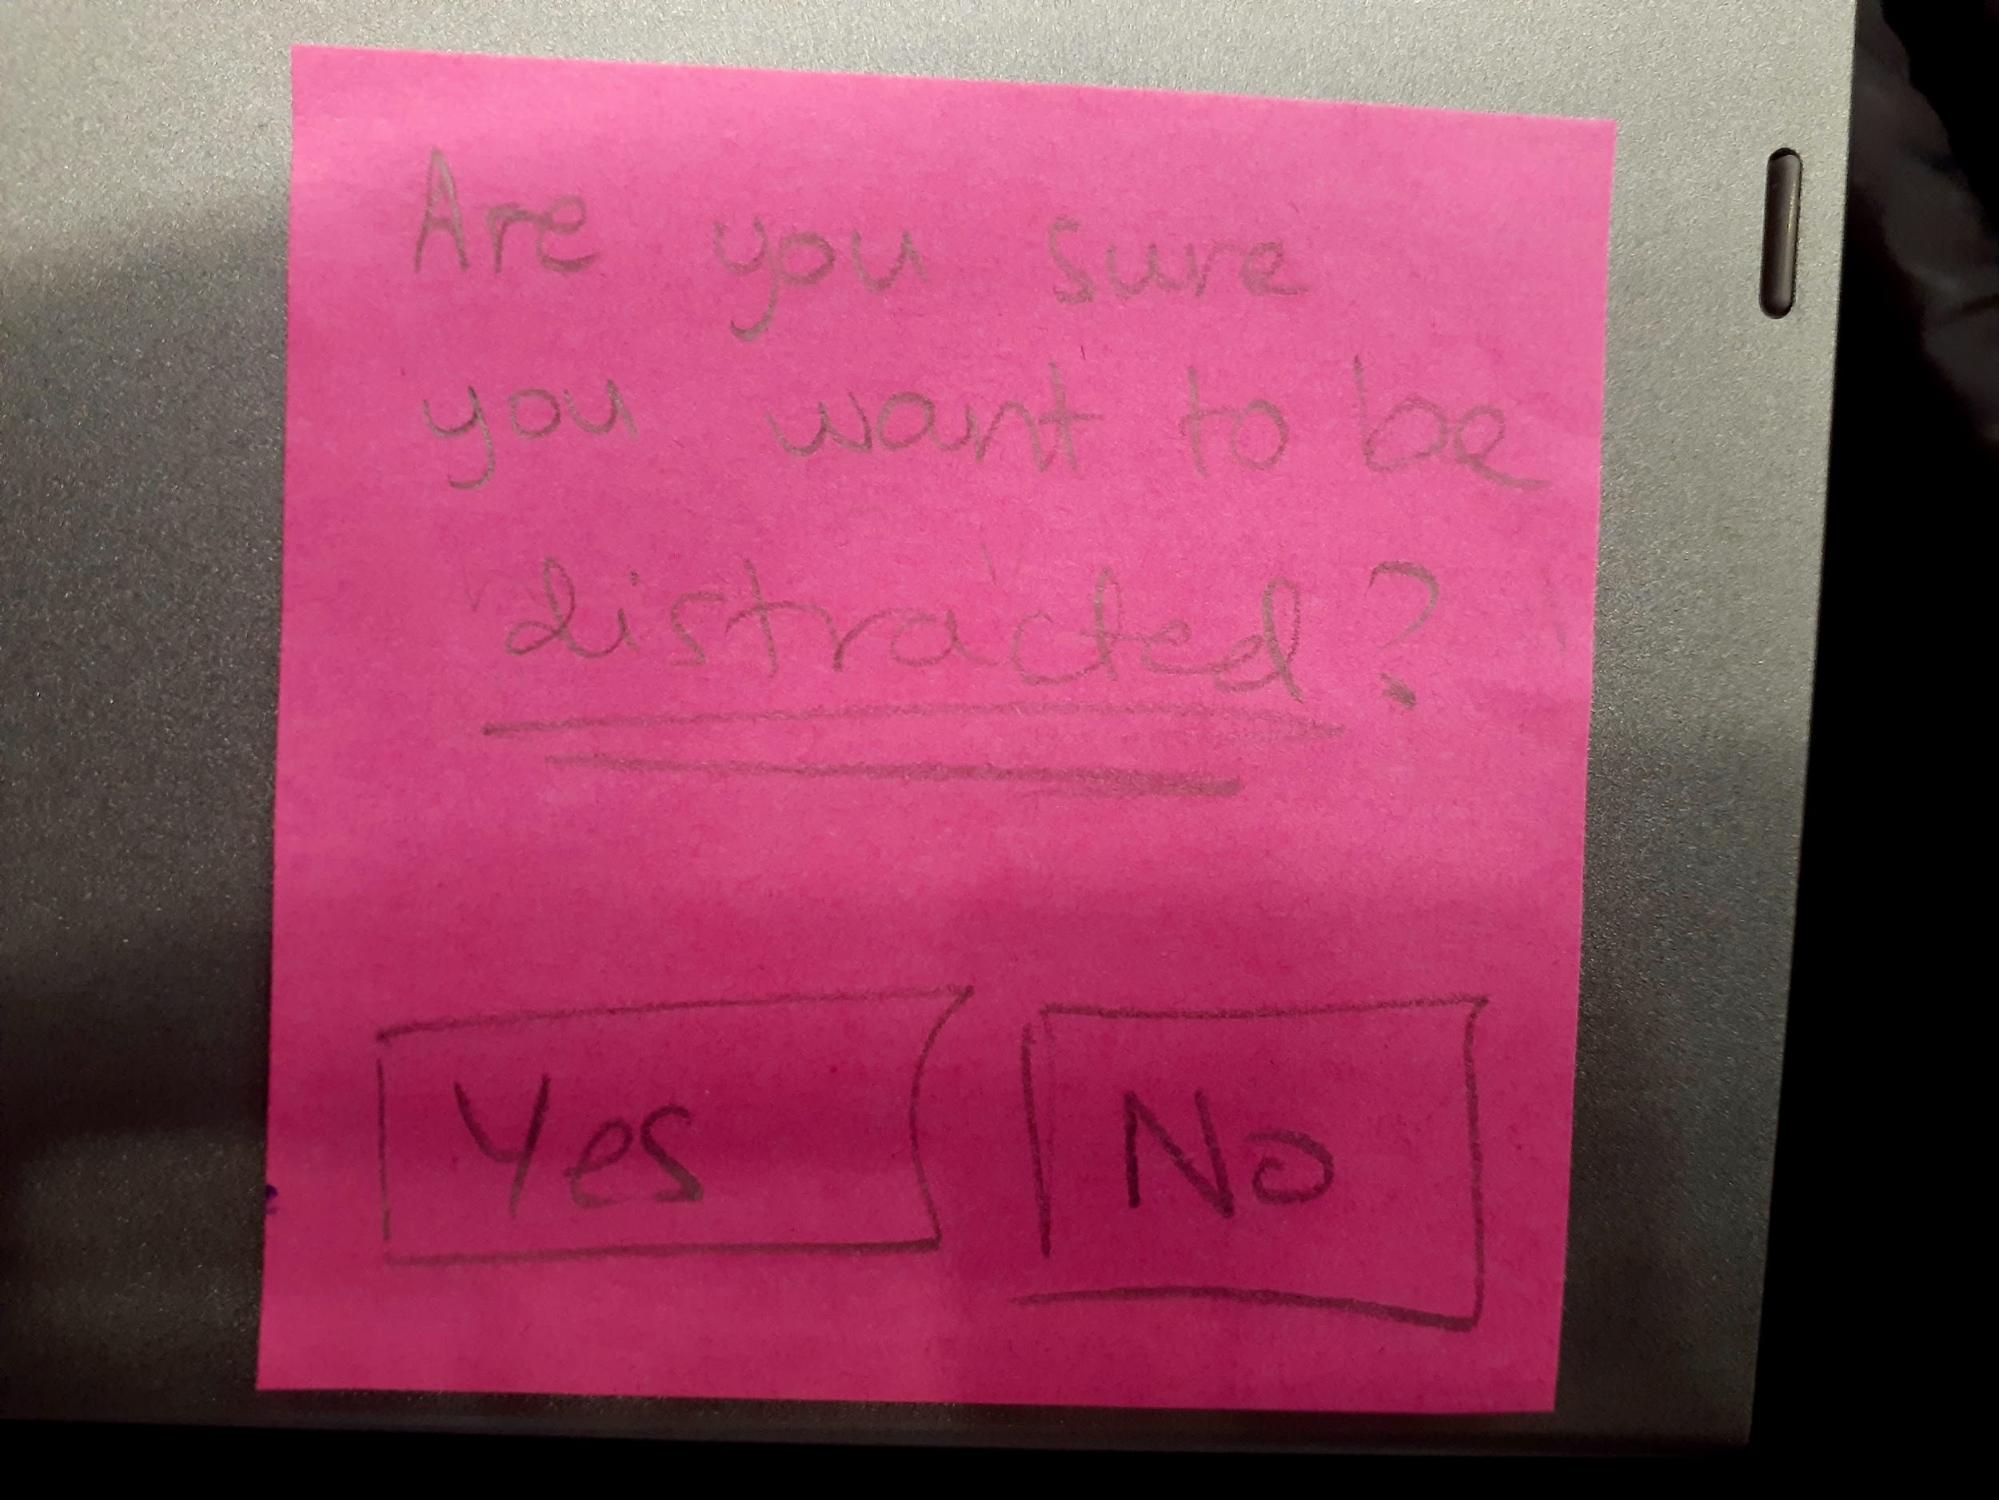 Are you sure
you want to be
distracted?
Yes No